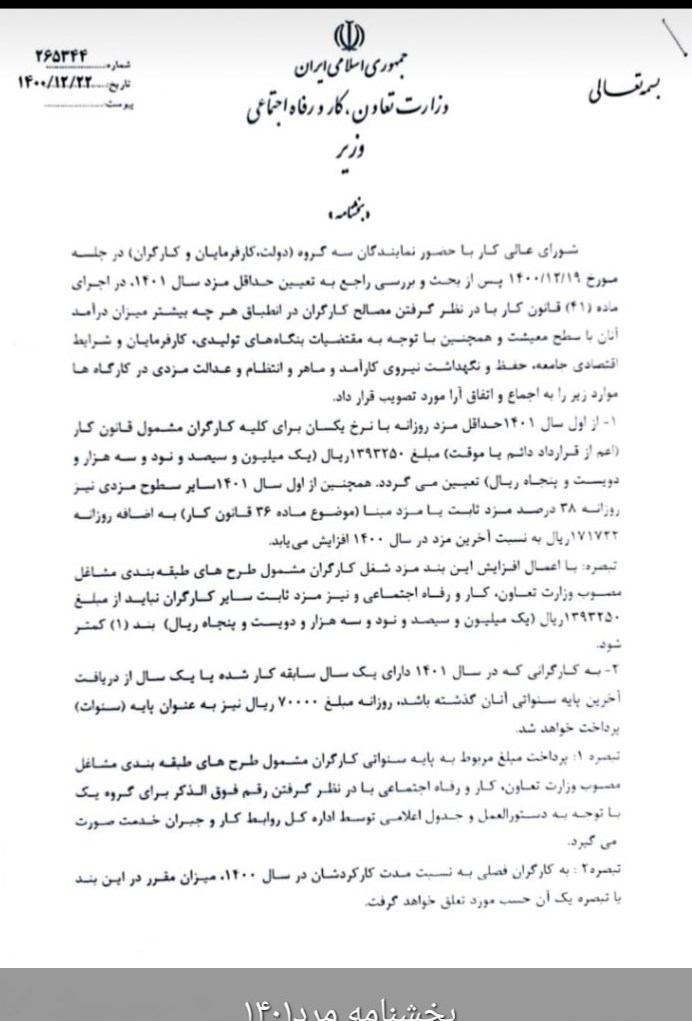 بسمه تعالی
جمهوری اسلامی ایران
وزارت تعاون، کار و رفاه اجتماعی
وزیر
شماره: ۲۶۵۳۴۴
تاریخ: ۱۴۰۰/۱۲/۲۲
پیوست:
«بخشنامه»
شورای عالی کار با حضور نمایندگان سه گروه (دولت،کارفرمایان و کارگران) در جلسه
مورخ ۱۴۰۰/۱۲/۱۹ پس از بحث و بررسی راجع به تعیین حداقل مزد سال ۱۴۰۱، در اجرای
ماده (۴۱) قانون کار با در نظر گرفتن مصالح کارگران در انطباق هر چه بیشتر میزان درآمد
آنان با سطح معیشت و همچنین با توجه به مقتضیات بنگاه‌های تولیدی، کارفرمایان و شرایط
اقتصادی جامعه، حفظ و نگهداشت نیروی کارآمد و ماهر و انتظام و عدالت مزدی در کارگاه ها
موارد زیر را به اجماع و اتفاق آرا مورد تصویب قرار داد.
۱- از اول سال ۱۴۰۱حداقل مزد روزانه با نرخ یکسان برای کلیه کارگران مشمول قانون کار
(اعم از قرارداد دائم یا موقت) مبلغ ۱۳۹۳۲۵۰ریال (یک میلیون و سیصد و نود و سه هزار و
دویست و پنجاه ریال) تعیین می گردد. همچنین از اول سال ۱۴۰۱سایر سطوح مزدی نیز
روزانه ۳۸ درصد مزد ثابت یا مزد مبنا (موضوع ماده ۳۶ قانون کار) به اضافه روزانه
۱۷۱۷۲۲ریال به نسبت آخرین مزد در سال ۱۴۰۰ افزایش می‌یابد.
تبصره: با اعمال افزایش این بند مزد شغل کارگران مشمول طرح های طبقه‌بندی مشاغل
مصوب وزارت تعاون، کار و رفاه اجتماعی و نیز مزد ثابت سایر کارگران نباید از مبلغ
۱۳۹۳۲۵۰ریال (یک میلیون و سیصد و نود و سه هزار و دویست و پنجاه ریال) بند (۱) کمتر
شود.
۲- به کارگرانی که در سال ۱۴۰۱ دارای یک سال سابقه کار شده یا یک سال از دریافت
آخرین پایه سنواتی آنان گذشته باشد، روزانه مبلغ ۷۰۰۰۰ ریال نیز به عنوان پایه (سنوات)
پرداخت خواهد شد.
تبصره ۱: پرداخت مبلغ مربوط به پایه سنواتی کارگران مشمول طرح های طبقه بندی مشاغل
مصوب وزارت تعاون، کار و رفاه اجتماعی با در نظر گرفتن رقم فوق الذکر برای گروه یک
با توجه به دستورالعمل و جدول اعلامی توسط اداره کل روابط کار و جبران خدمت صورت
می گیرد.
تبصره۲ : به کارگران فصلی به نسبت مدت کارکردشان در سال ۱۴۰۰، میزان مقرر در این بند
با تبصره یک آن حسب مورد تعلق خواهد گرفت.
بخشنامه مزد۱۴۰۱